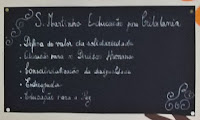 S. Martinho Educação para Cidadania
- Defesa do valor da solidariedade
- Educação para os Direitos Humanos
- Consciencialização da desigualdade
- Entreajuda
- Educação para a Paz